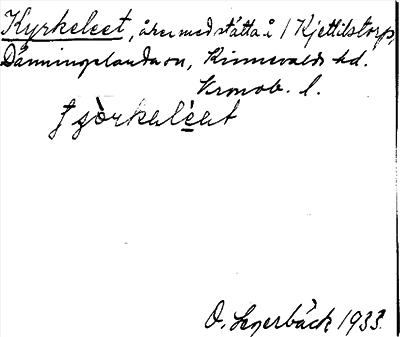 Kyrkeleet, åker med slåtta å 1 Kjettilstorp,
Dänningelanda sn, Kinnevalds hd.
Kronob. l.
O. Legerbäck 1933.